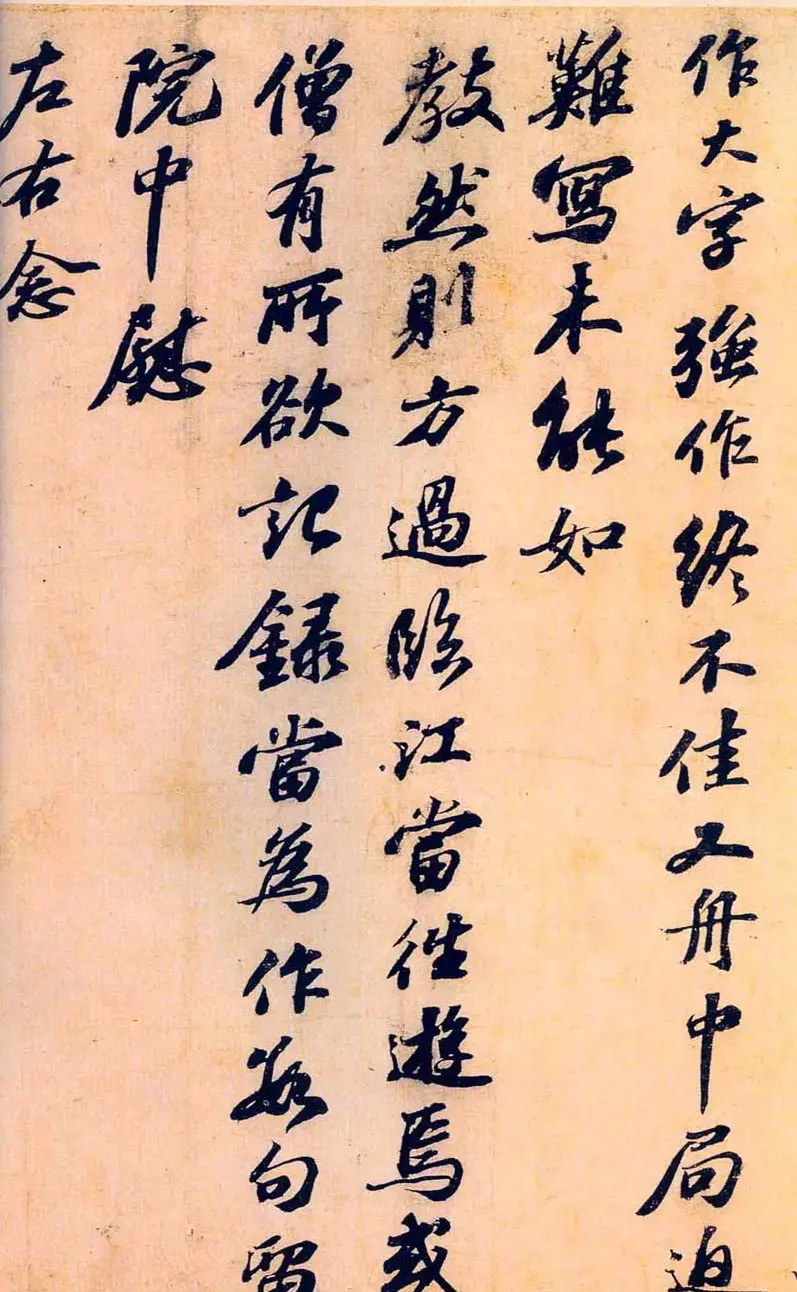 作大字強作終不佳又舟中局迫
難寫未能如
教然則方過臨江當往遊焉或
僧有所欲記錄當為作數句留
院中慰
左右念